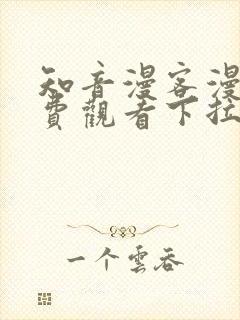 知音漫客漫
費觀看下拉
一个雲吞